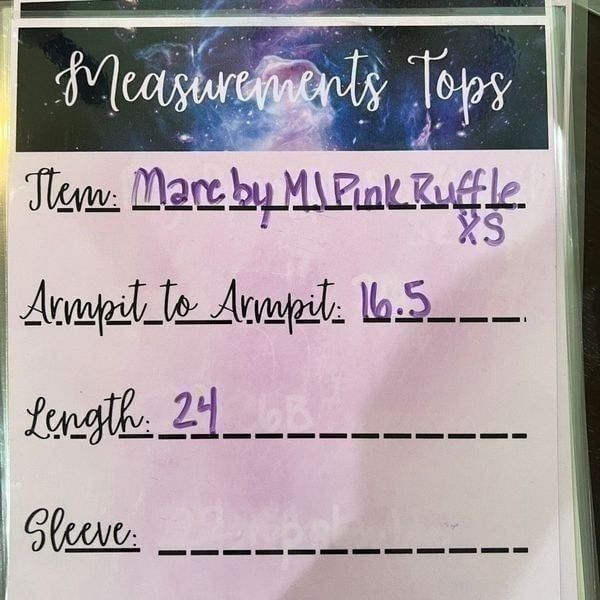 Measurements Tops
Item: Marc by MJ Pink Ruffle
XS
Armpit to Armpit: 16.5
Length: 24
Sleeve: